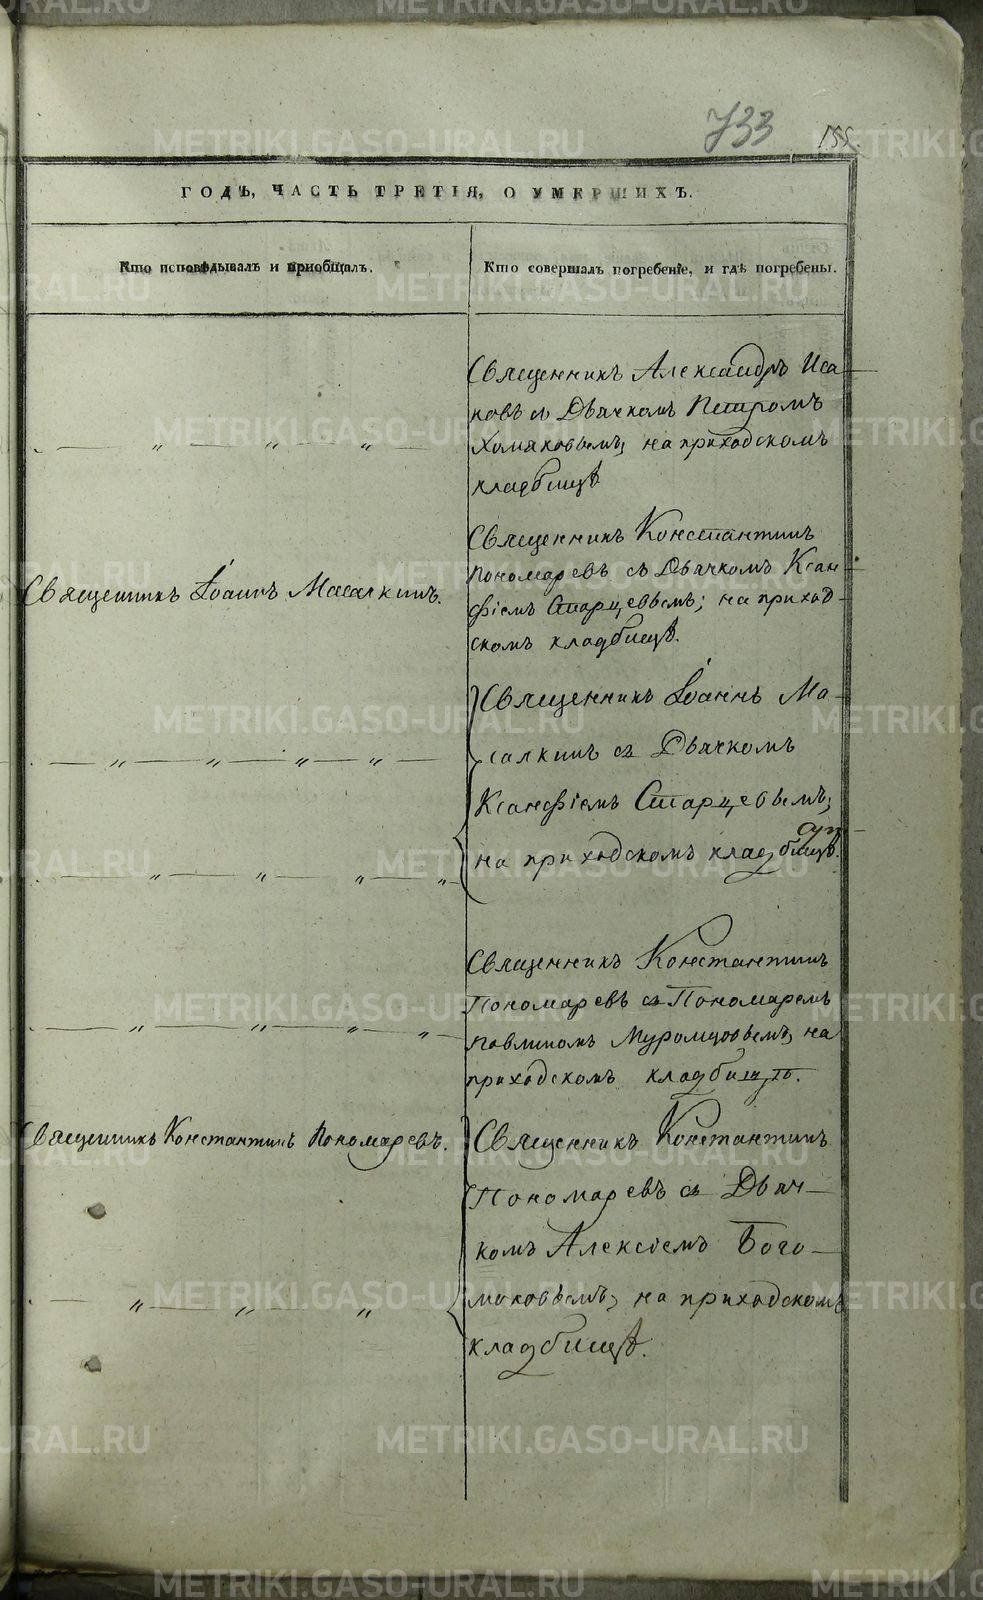 733
155.
ГОДЪ, ЧАСТЬ ТРЕТІЯ, О УМЕРШИХЪ.
Кто исповѣдывалъ и пріобщалъ.
Кто совершалъ погребеніе, и гдѣ погребены.
Священникъ Александръ Иса
ковъ съ Дьячкомъ Петромъ
Хомяковымъ, на приходскомъ
кладбищѣ
Священникъ Іоаннъ Масалкинъ.
Священникъ Константинъ
Пономаревъ съ Дьячкомъ Ксан-
фіемъ Старцевымъ; на приход-
скомъ кладбищѣ.
Священникъ Іоаннъ Ма-
салкинъ съ Дьячкомъ
Ксанфіемъ Старцевымъ;
на приходскомъ кладбищѣ.
Священникъ Константинъ
Пономаревъ съ Пономаремъ
Павлиномъ Муромцовымъ, на
приходскомъ кладбищѣ.
Священникъ Константинъ Пономаревъ.
Священникъ Константинъ
Пономаревъ съ Дьяч-
комъ Алексіемъ Бого-
моловымъ, на приходскомъ
кладбищѣ.
METRIKI.GASO-URAL.RU